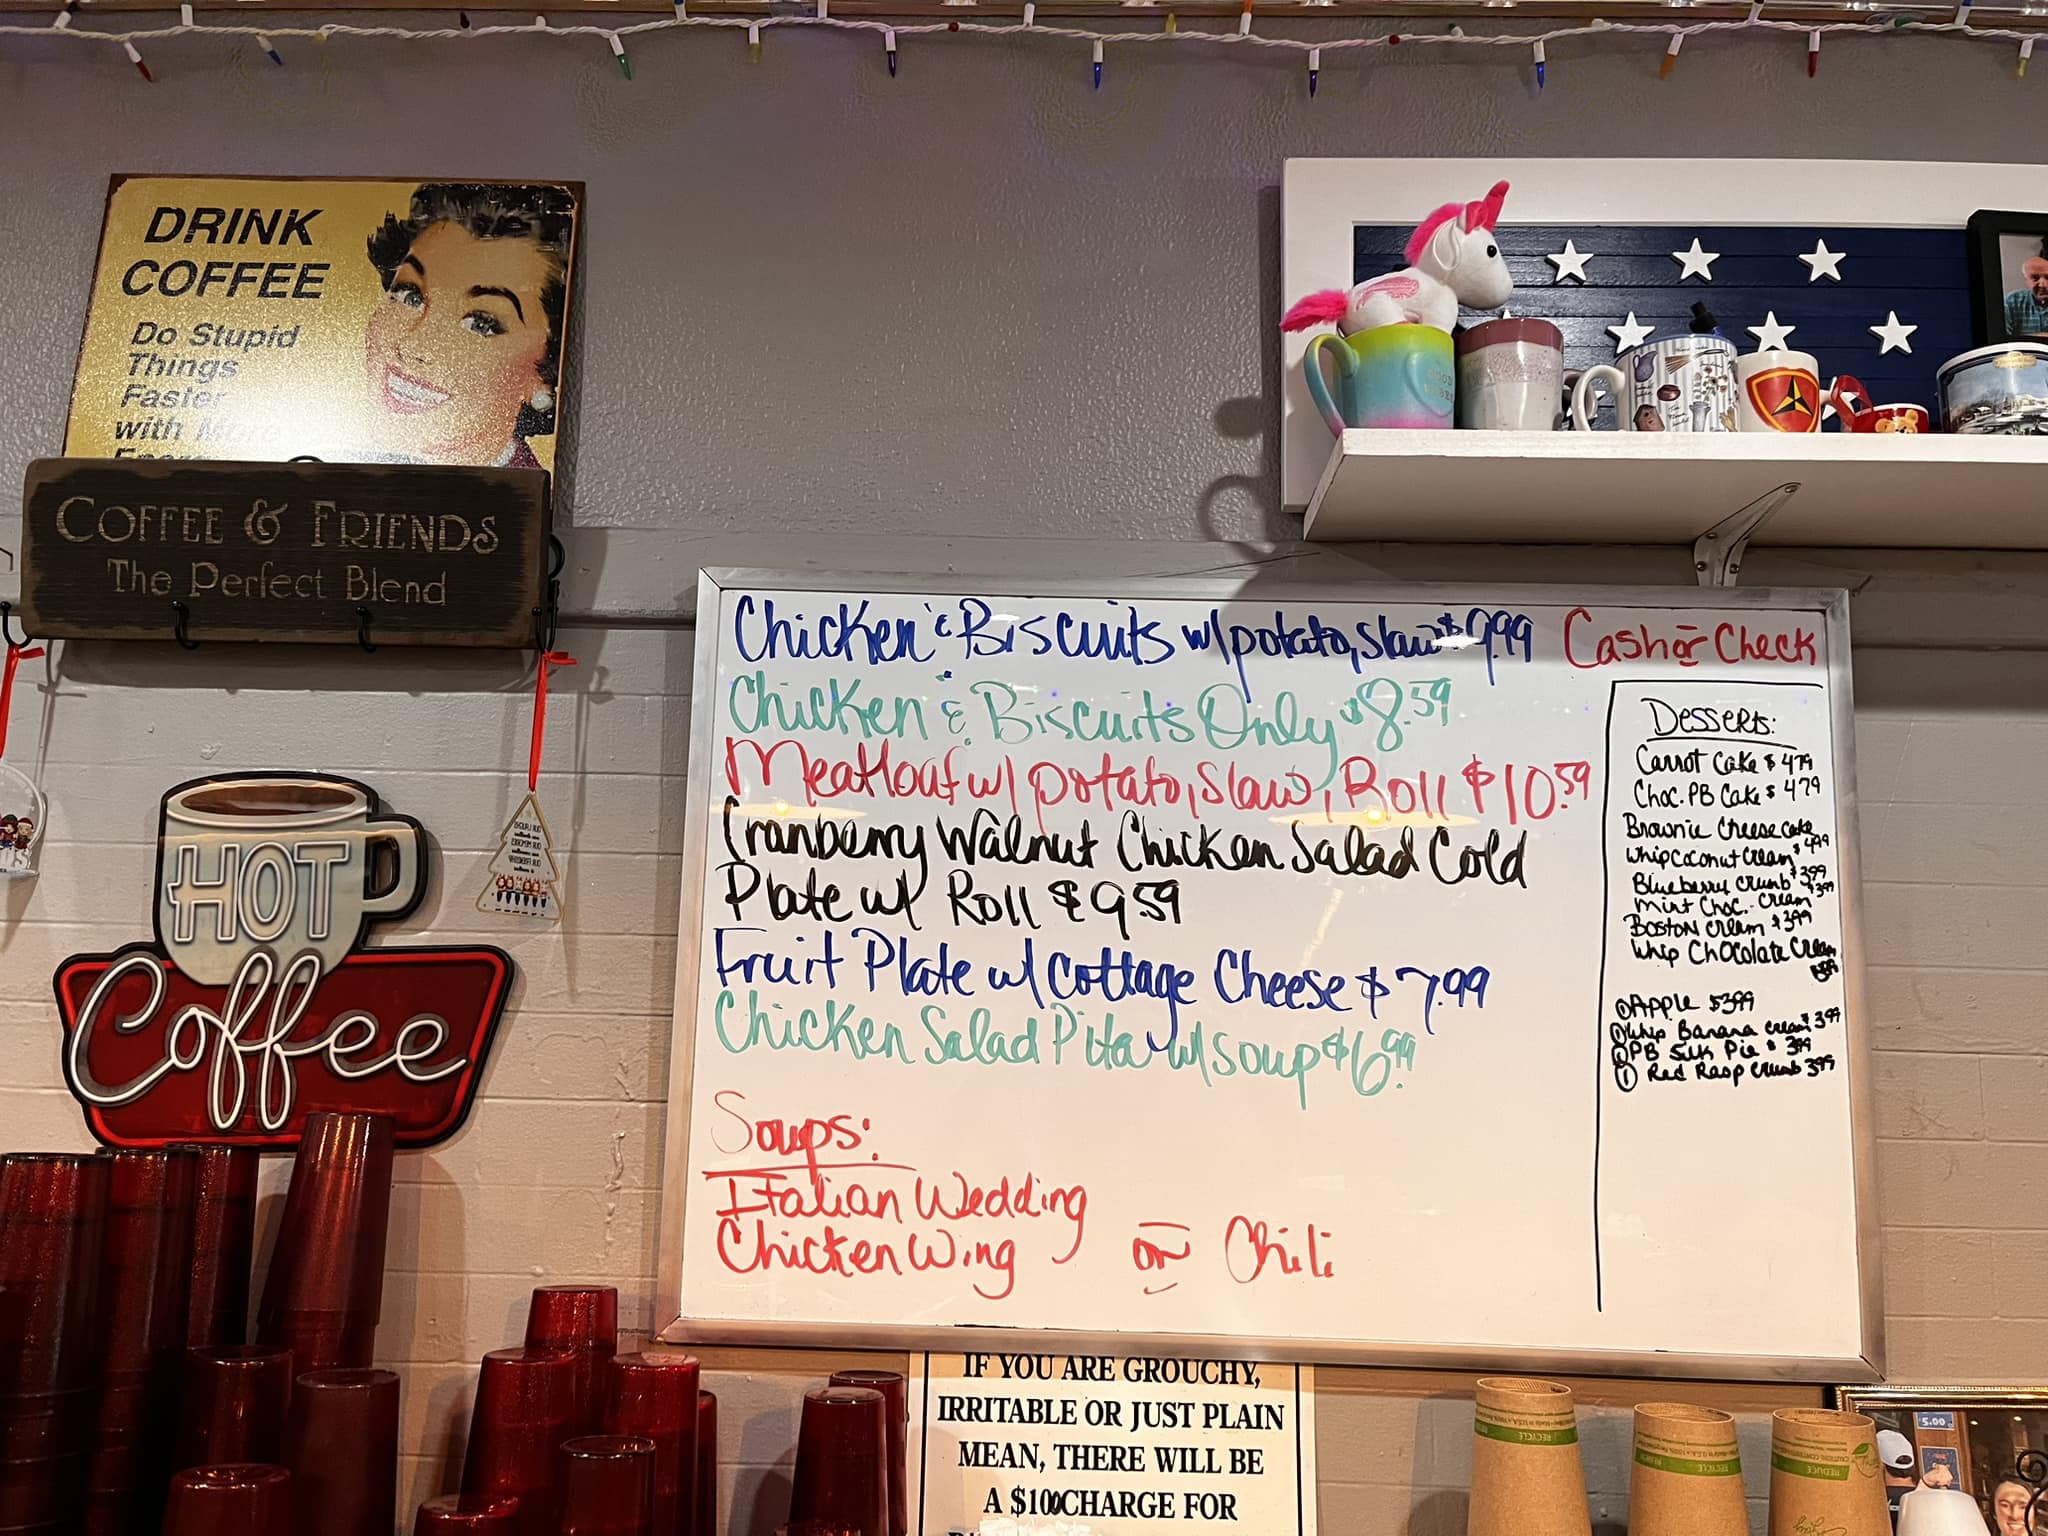 DRINK
COFFEE
Do Stupid
Things
Faster
with More
COFFEE & FRIENDS
The Perfect Blend
HOT
Coffee
Chicken & Biscuits w/ potato, slaw $9.99
Cash or Check
Chicken & Biscuits Only $8.59
Meatloaf w/ potato, slaw, Roll $10.59
Cranberry Walnut Chicken Salad Cold
Plate w/ Roll $9.59
Fruit Plate w/ Cottage Cheese $7.99
Chicken Salad Pita w/ soup $6.99
Soups:
Italian Wedding
Chicken Wing or Chili
Desserts:
Carrot Cake $4.79
Choc. PB Cake $4.79
Brownie Cheesecake
$4.99
Whip Coconut Cream
$3.99
Blueberry Crumb $3.99
Mint Choc. Cream
Boston Cream $3.99
Whip Chocolate Cream
$3.99
① Apple $3.99
① Whip Banana Cream $3.99
① PB Silk Pie $3.99
① Red Rasp Crumb 3.99
IF YOU ARE GROUCHY,
IRRITABLE OR JUST PLAIN
MEAN, THERE WILL BE
A $100 CHARGE FOR
RECYCLE
REDUCE
5.00